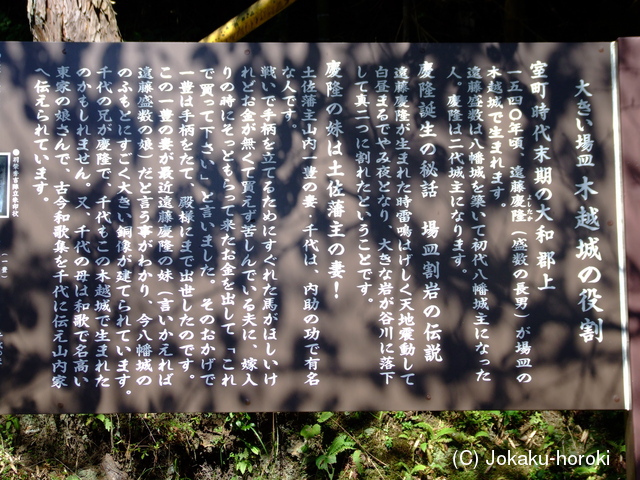 大きい場皿 木越城の役割
室町時代末期の大和 郡上
一五四〇年頃、遠藤慶隆(盛数の長男)が場皿の
よしたか
木越城で生まれます。
遠藤盛数は八幡城を築いて初代八幡城主になった
人。慶隆は二代城主になります。
慶隆誕生の秘話 場皿割岩の伝説
遠藤慶隆が生まれた時雷鳴はげしく天地震動して
白昼まるでやみ夜となり、大きな岩が谷川に落下
して真二つに割れたということです。
慶隆の妹は土佐藩主の妻!
土佐藩主山内一豊の妻・千代は、内助の功で有名
な人です。
戦いで手柄を立てるためにすぐれた馬がほしいけ
れどお金が無くて買えず苦しんでいる夫に、嫁入
りの時にそっともらって来たお金を出して「これ
で買って下さい」と言いました。そのおかげで
一豊は手柄をたて、殿様にまで出世したのです。
この一豊の妻が最近遠藤慶隆の妹(言いかえれば
遠藤盛数の娘)だと言う事がわかり、今八幡城の
のふもとにすごく大きい銅像が建てられています。
千代の兄が慶隆で、千代もこの木越城で生まれた
のかもしれません。又、千代の母は和歌で名高い
東家の娘さんで、古今和歌集を千代に伝え山内家
へ伝えられています。
(C) Jokaku-horoki